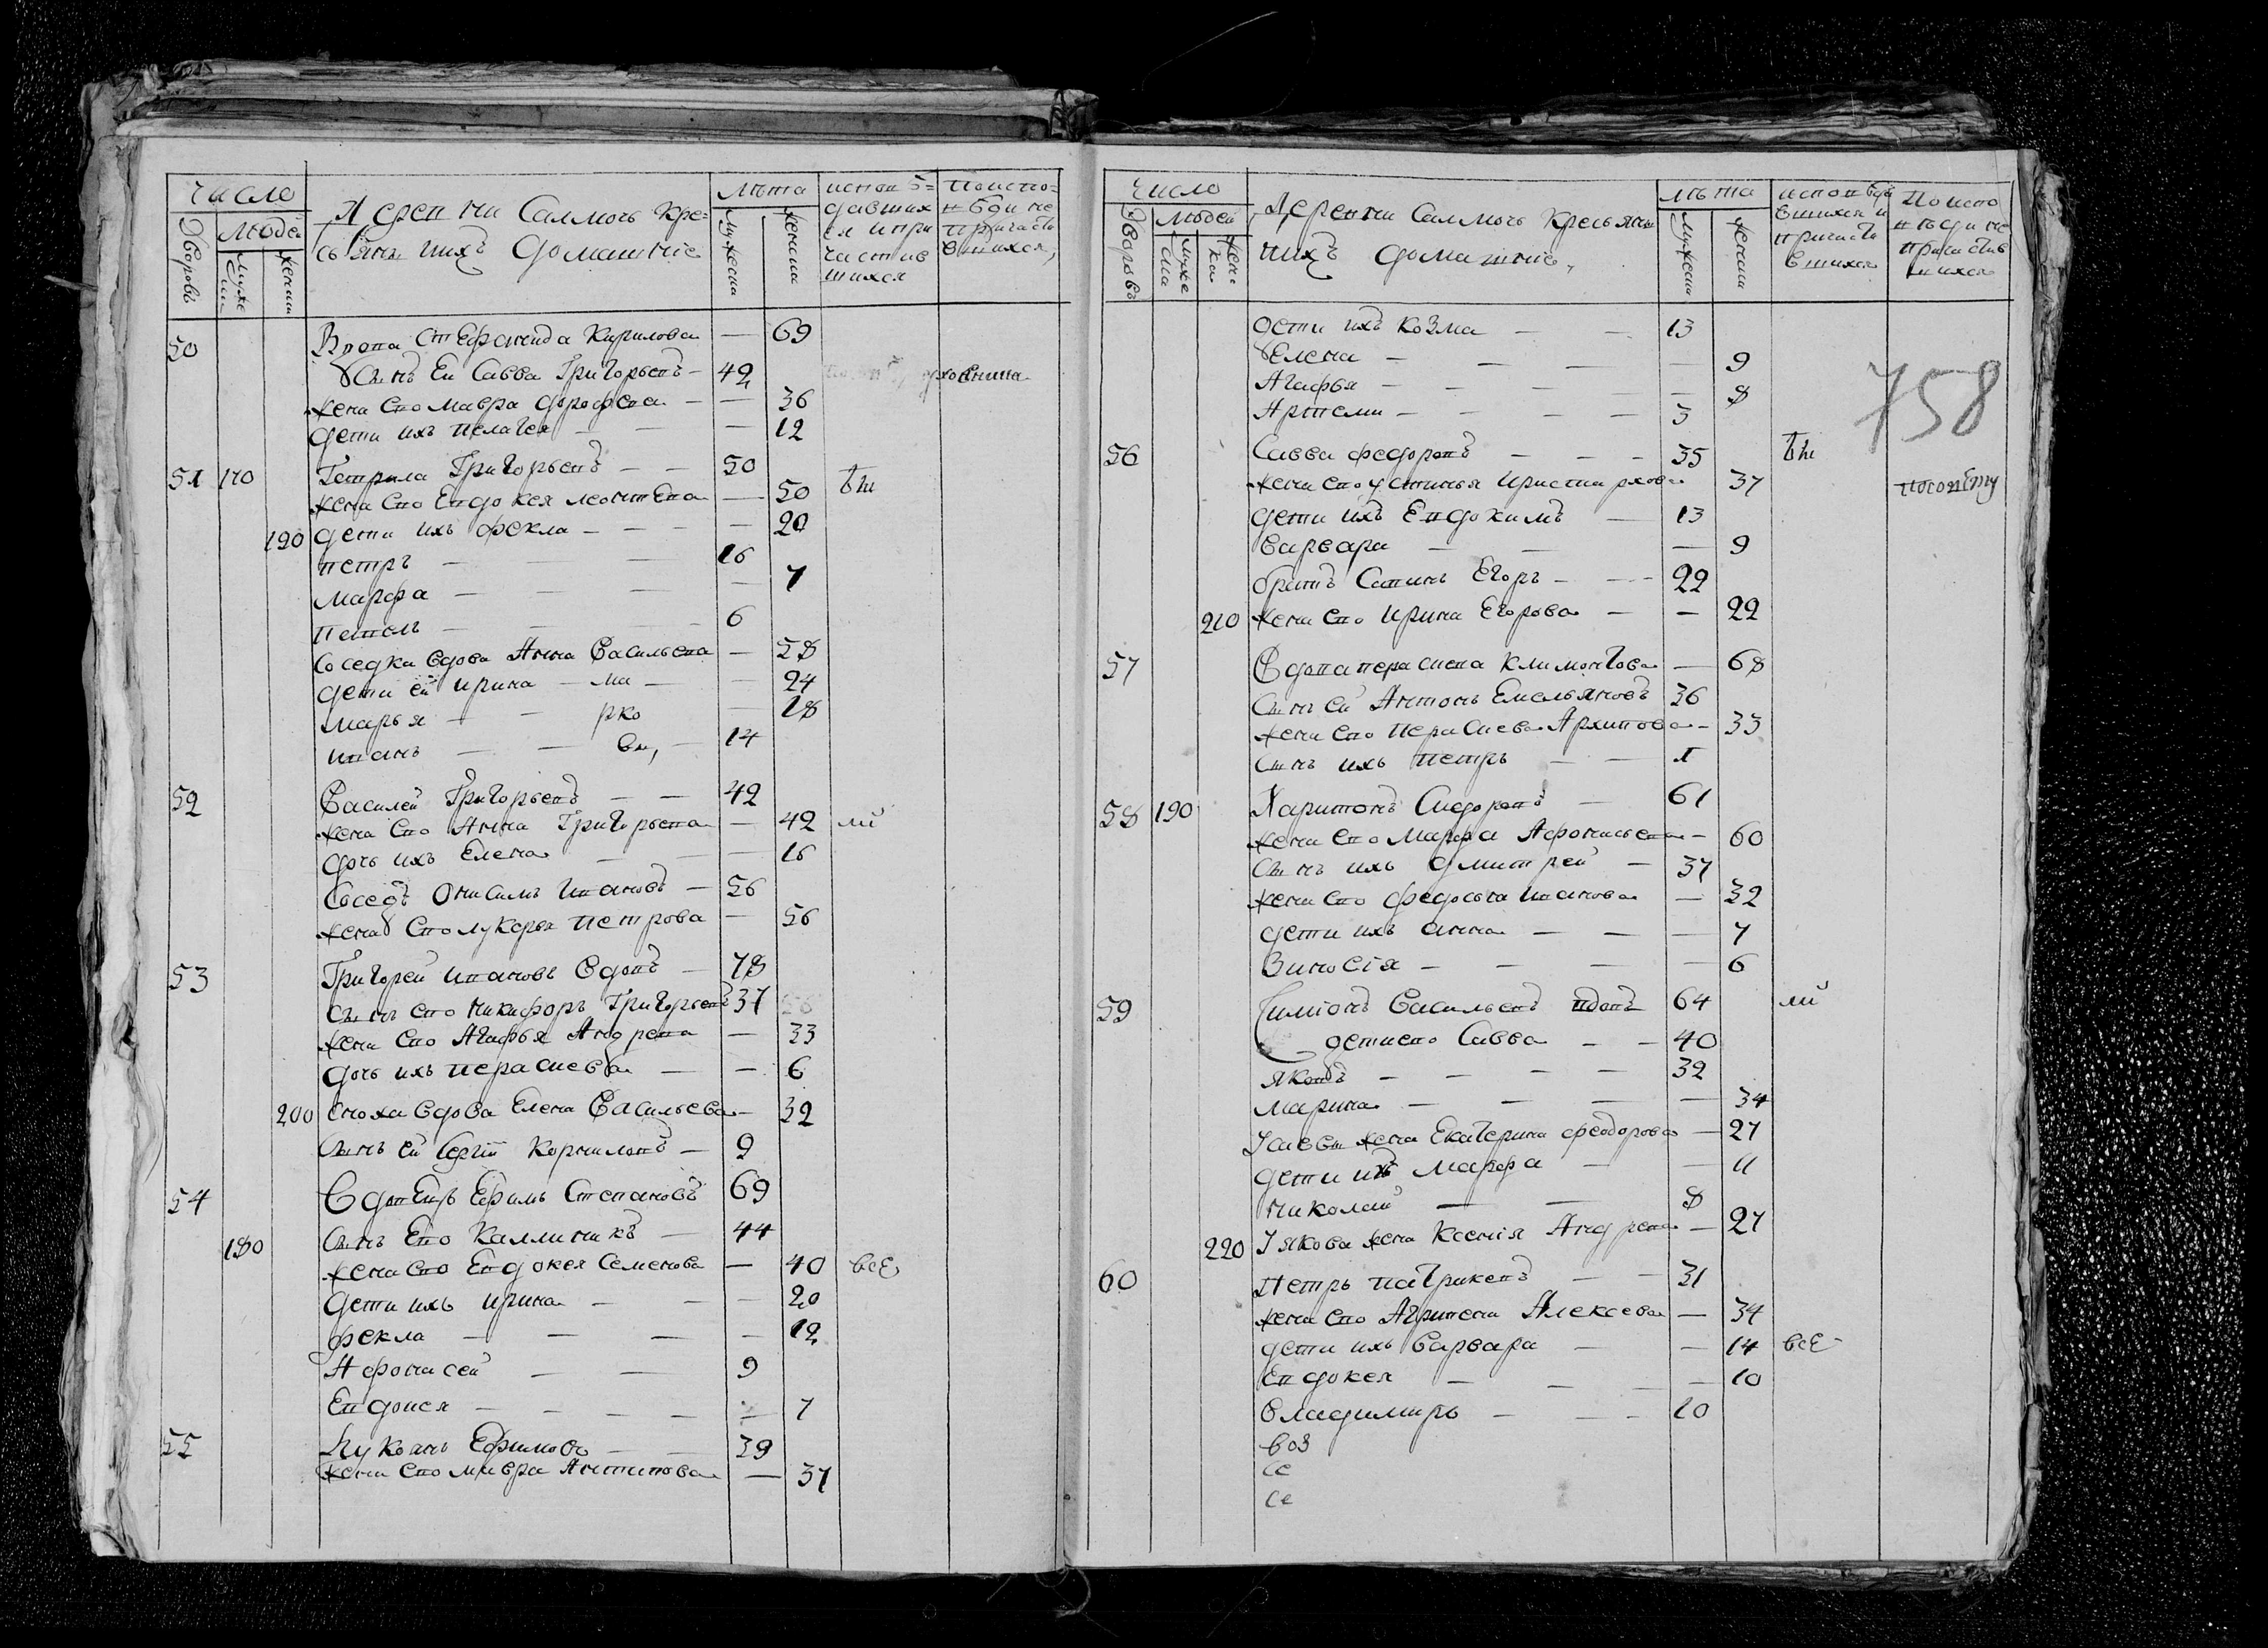 Число
Дворовъ
людей
муже
ска
женска
Деревни Салмочь кре=
стьяне и ихъ домашние
лѣта
мужеска
женска
исповѣ=
давших
ся и при
частив
шихся
По испо-
вѣди не
причасти
вшихся,
50 Вдова Стефанида Кирилова — 69
Сынъ Ей Савва Григорьевъ — 42
жена ево Мавра Дорофеева — — 36
дети ихъ пелагея — — 12
51 170 Гаврила Григорьевъ — — 50
жена ево Евдокея леонтева — 50 бы
190 дети ихъ фекла — — — 20
петръ — — — 16
марфа — — — — 7
павелъ — — — 6
соседка вдова Анна Васильева — 58
дети ей ирина — — 24
марья — — — 18
иванъ — — — 14
52 Василей Григорьевъ — — 42
жена ево Анна Григорьева — 42 ли
дочь ихъ Елена — — 16
Соседъ Онисимъ ивановъ — 56
жена ево лукерья петрова — 56
53 Григорей ивановъ вдовъ — 78
сынъ ево никифоръ Григорьевъ 37
жена ево Агафья Андреева — 33
дочь ихъ парасцева — — 6
200 сноха вдова Елена Васильева — 32
сынъ ей Сергiй корниловъ — 9
54 Вдовецъ Ефимъ Степановъ 69
180 сынъ Ево Каллиникъ — 44
жена ево Евдокея Семенова — 40 всѣ
дети ихъ ирина — — — 20
фекла — — — — 12
Афонасей — — 9
Евдокея — — — — — 7
55 Лукоянъ Ефимовъ — — 39
жена ево мавра Антипова — 37
Число
Дворовъ
людей
муже
ска
жен
ска
Деревни Салмочь крестьяне
и ихъ домашние,
лѣта
мужеска
женска
исповѣда
вшихся и
причасти
вшихся
По испо
вѣди не
причастив
шихся
758
дети ихъ козма — — 13
Елена — — — — 9
Агафья — — — — 8
Артеми — — — — 3
56 Савва федоровъ — — — 35 бы
жена ево устинья Аристархова 37
дети ихъ Евдокимъ — 13
варвара — — — 9
братъ Саввинъ Егоръ — — 22
210 жена ево ирина Егорова — — 22
57 Вдова парасцева климонтова — 68
сынъ ей Антонъ Емельяновъ 36
жена ево парасцева Архипова — 33
сынъ ихъ петръ — — 1
58 190 Харитонъ Сидоровъ — 61
жена ево марфа Афонасьева — 60
сынъ ихъ дмитрей — 37
жена ево федосья иванова — 32
дети ихъ анна — — — 7
Зиновiя — — — — 6
59 Симiонъ Васильевъ вдовъ 64 ли
дети ево Савва — — 40
яковъ — — — — 32
марина — — — — 34
Саввы жена Екатерина феодорова — 27
дети ихъ марфа — — 11
николай — — 8
220 Iякова жена ксенiя Андреева — 27
60 Петръ патрикевъ — — 31
жена ево Агрипена Алексеева — 34
дети ихъ варвара — — 14 всѣ
Евдокея — — — — 10
Владимиръ — — — 10
воз
се
се